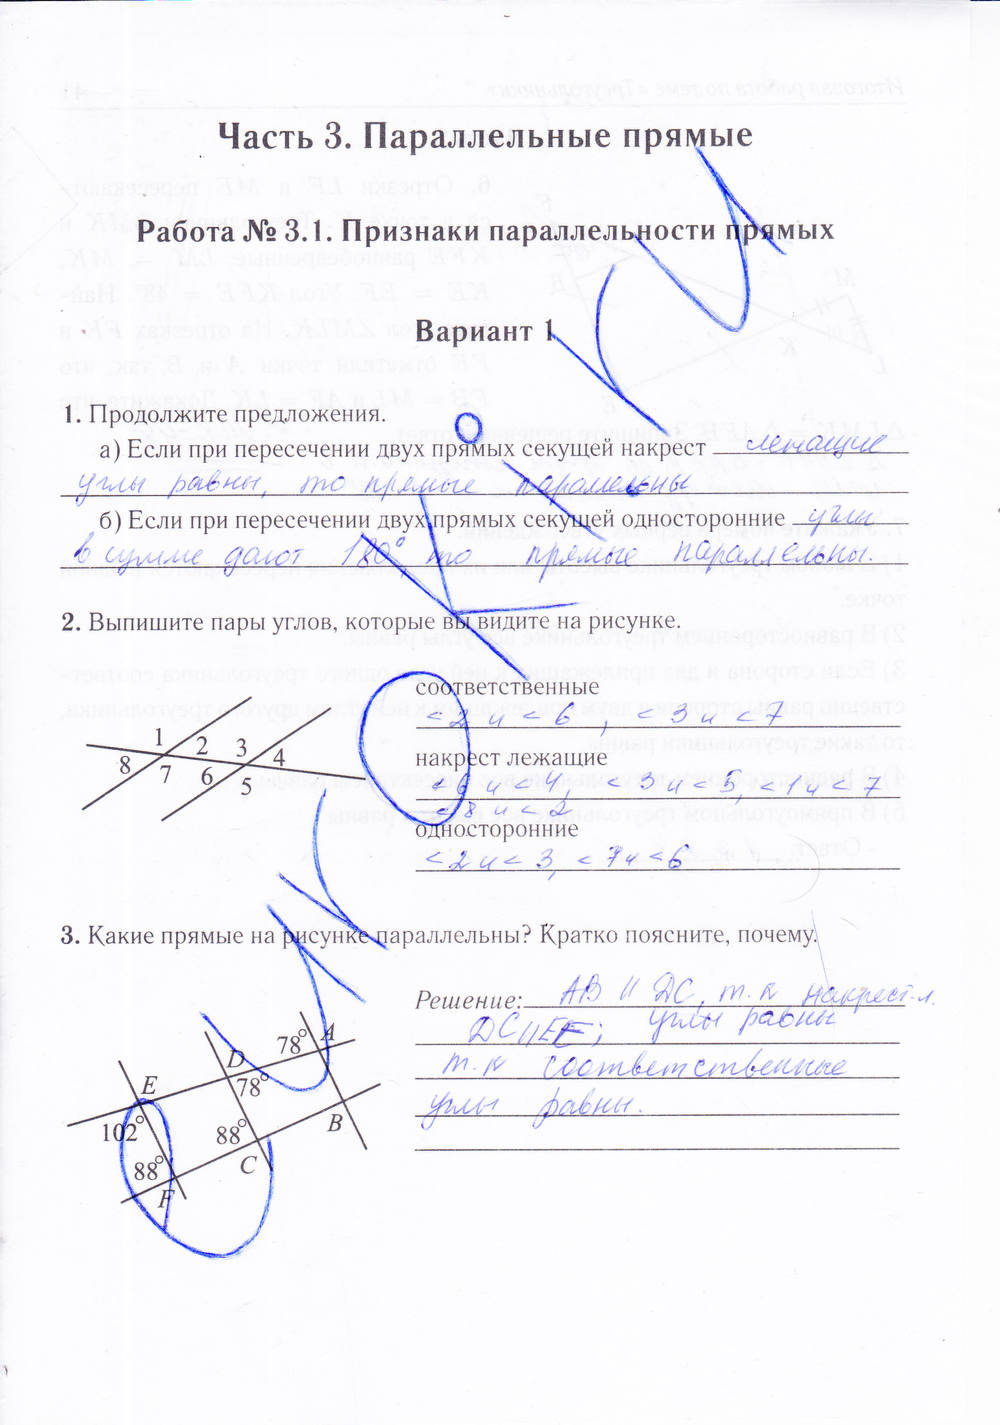 Часть 3. Параллельные прямые
Работа № 3.1. Признаки параллельности прямых
Вариант 1
1. Продолжите предложения.
а) Если при пересечении двух прямых секущей накрест лежащие
углы равны, то прямые параллельны
б) Если при пересечении двух прямых секущей односторонние углы
в сумме дают 180° то прямые параллельны.
2. Выпишите пары углов, которые вы видите на рисунке.
соответственные
<2 и <6, <3 и <7
накрест лежащие
<6 и <4, <3 и <5, <1 и <7
<8 и <2
односторонние
<2 и <3, <7 и <6
1 2 3 4
8 7 6 5
3. Какие прямые на рисунке параллельны? Кратко поясните, почему.
Решение: AB || DC, т.к накрест-л.
DC||EF; углы равны
т.к соответственные
углы равны.
78° A
D
78°
E
102°
88°
B
C
88°
F